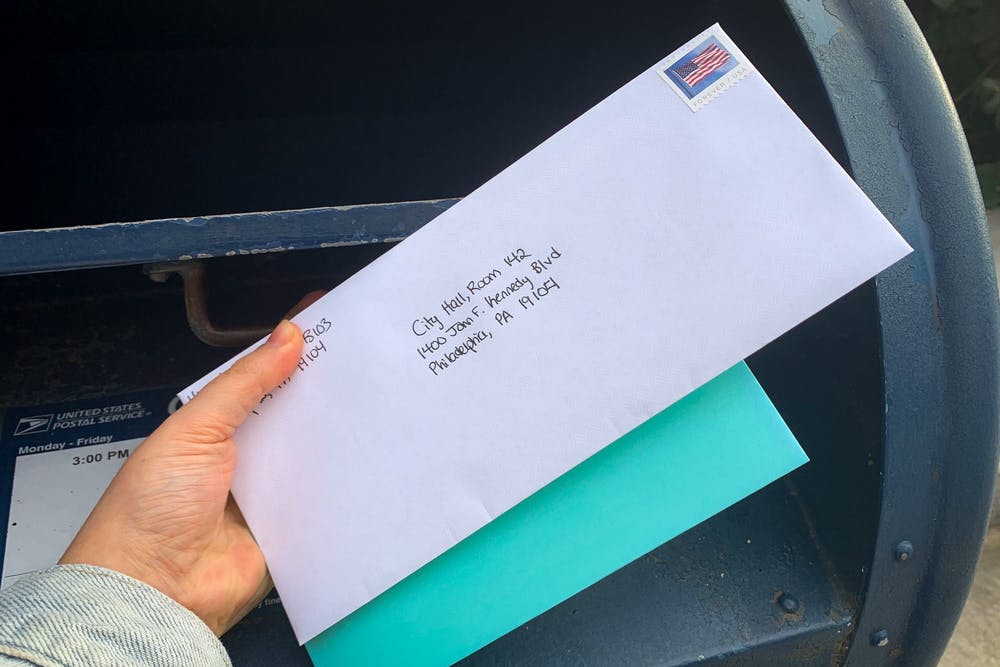 FOREVER / USA
City Hall, Room 142
1400 John F. Kennedy Blvd
Philadelphia, PA 19104
B103
19104
UNITED STATES
POSTAL SERVICE
Monday - Friday
3:00 PM